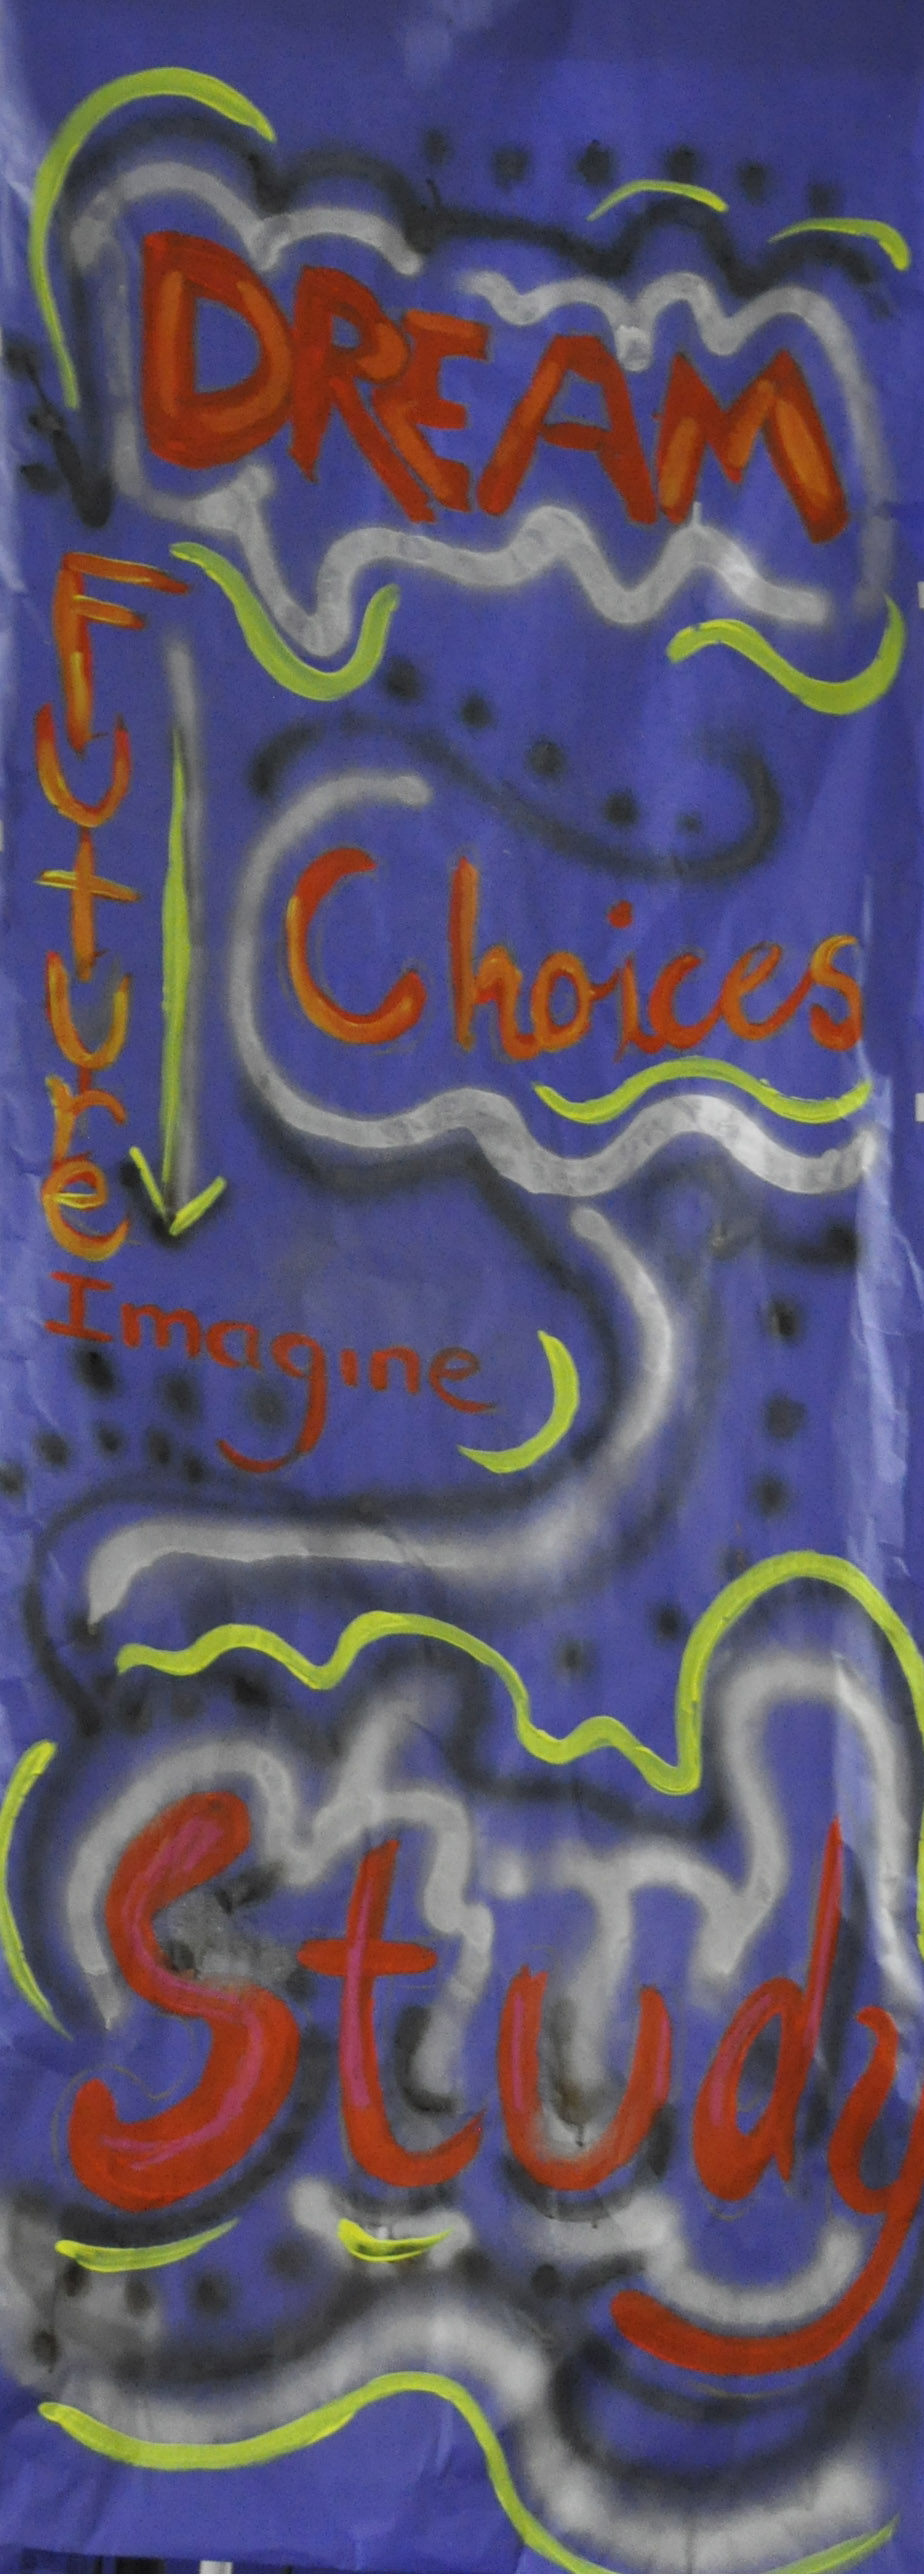 DREAM
Future
Choices
Imagine
Study